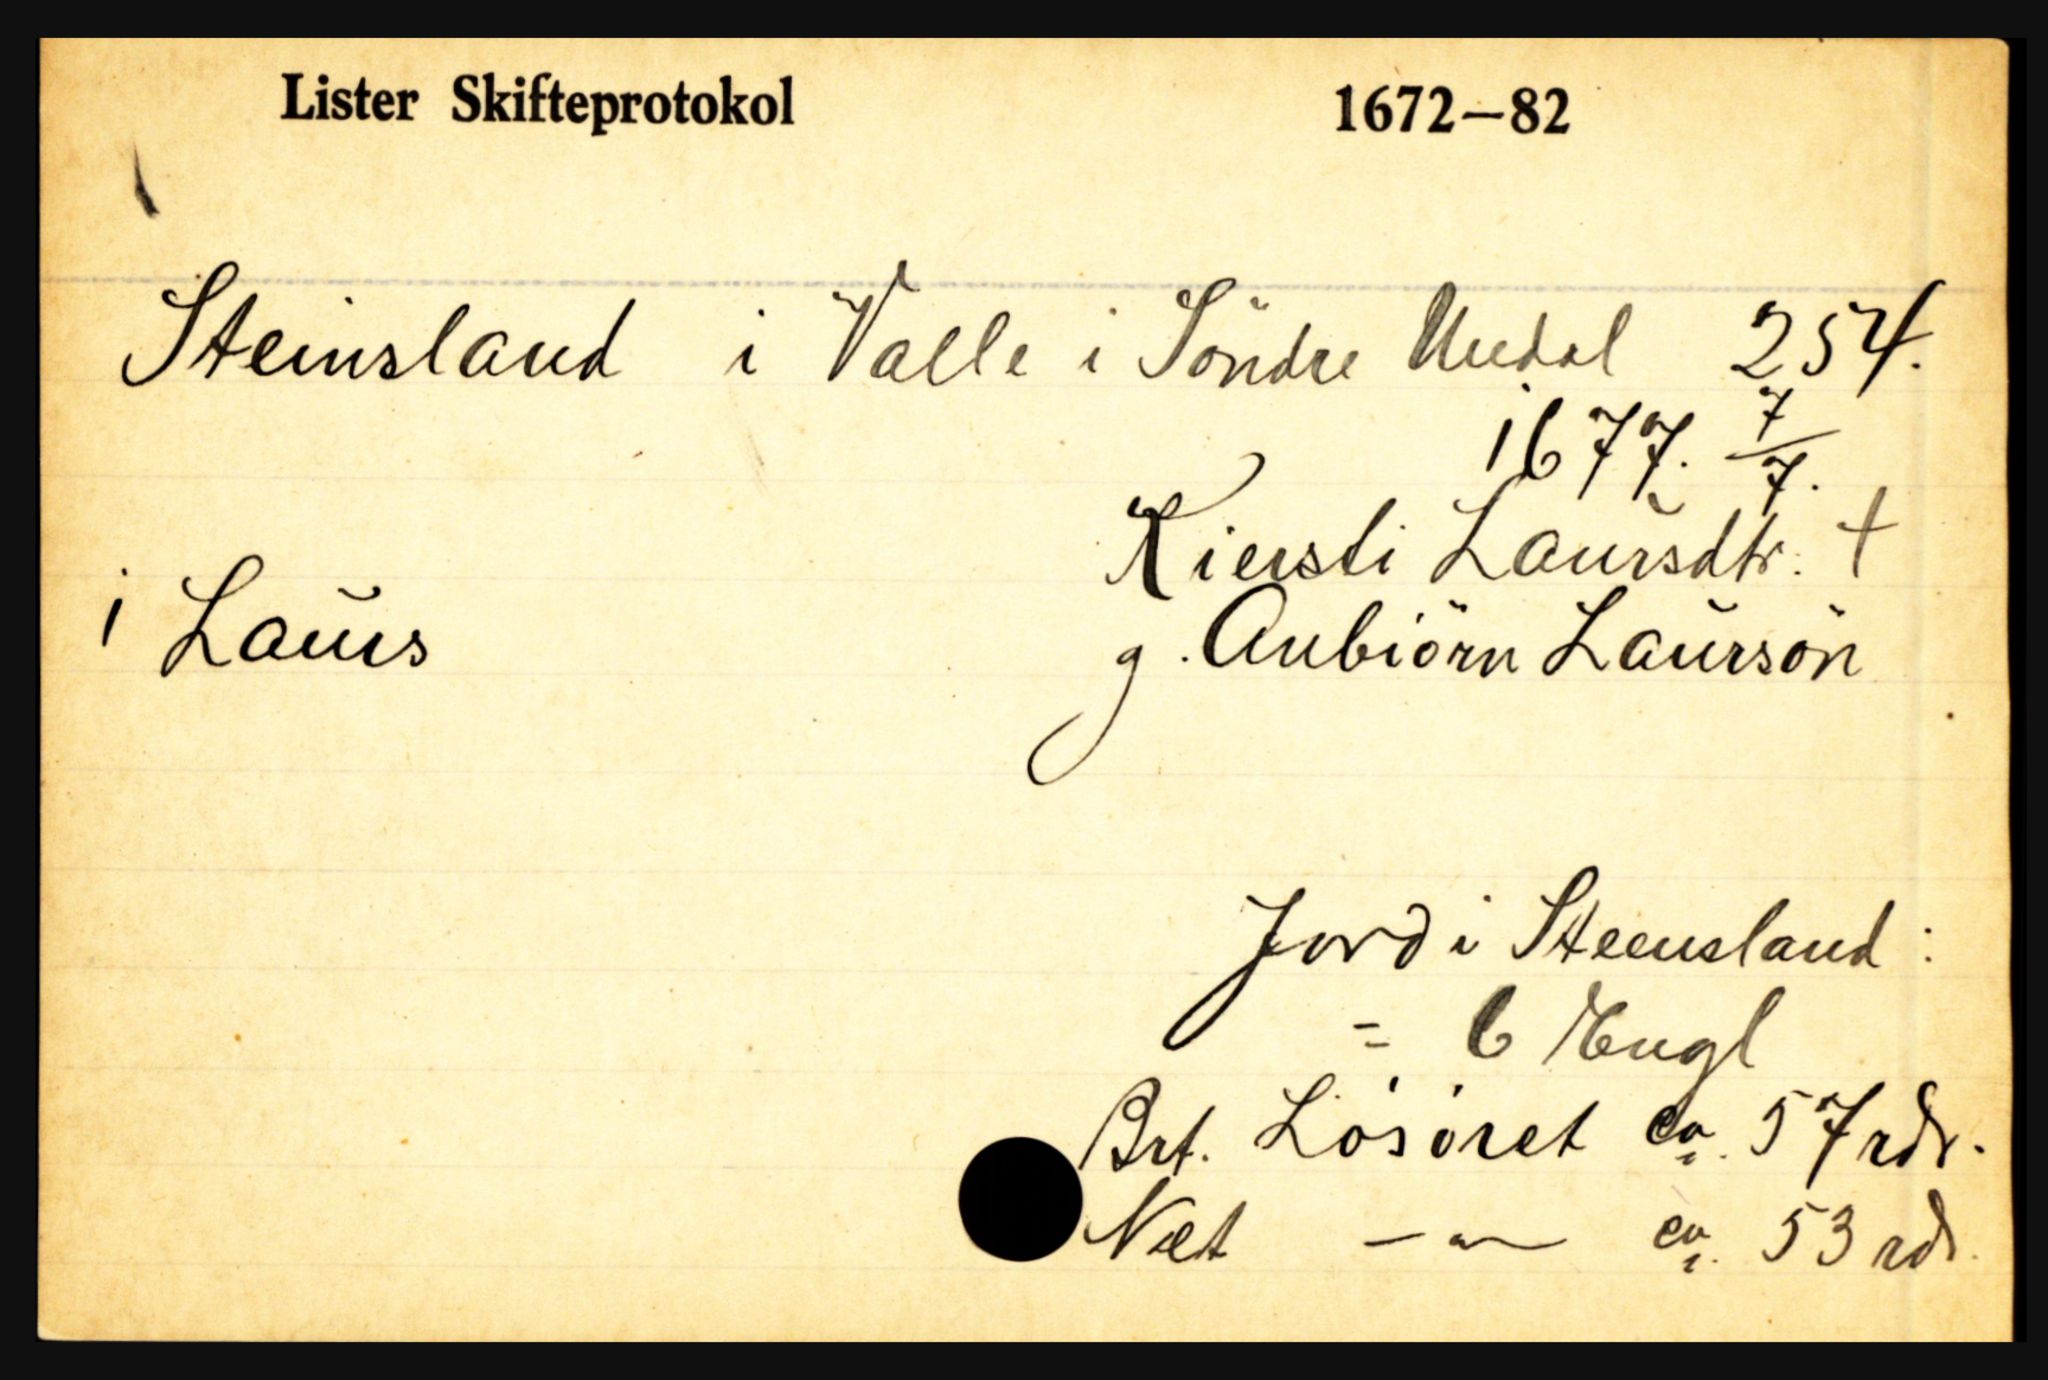 Lister Skifteprotokol 1672–82
Steinsland i Valle i Söndre Undal 254.
1677. 7/7.
Kiersti Laursdtr. †
i Laurs g. Anbiörn Laursön
Jord i Steensland :
= 6 Engl
Brt. Lösöret ca. 57 rdr.
Net —"— ca. 53 rdr.